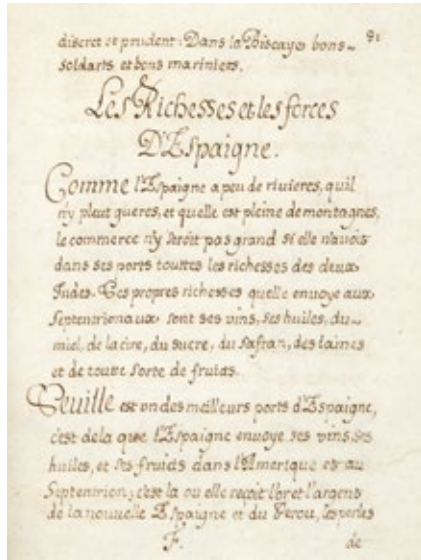 discret et prudent. Dans la Biscaye bons 91
soldarts et bons mariniers.
Les Richesses et les forces
D'Espaigne.
Comme l'Espaigne a peu de rivieres, quil
n'y pleut gueres, et quelle est pleine de montagnes,
le commerce n'y seroit pas grand si elle n'avois
dans ses ports touttes les richesses des deux
Indes. Ses propres richesses quelle envoye aux
septentrionaux sont ses vins, ses huiles, du
miel, de la cire, du sucre, du safran, des laines
et de toutte sorte de fruits.
Seuille est un des meilleurs ports d'Espaigne,
c'est dela que l'Espaigne envoye ses vins, ses
huiles, et ses fruits dans l'Amerique et au
Septentrion; c'est la ou elle reçoit l'or et l'argent
de la nouvelle Espaigne et du Perou, les perles
F. de